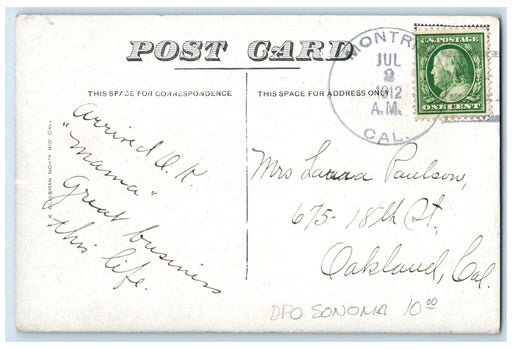 POST CARD
THIS SPACE FOR CORRESPONDENCE
THIS SPACE FOR ADDRESS ONLY
MONTRI
JUL
1912
A.M.
CAL.
U.S. POSTAGE
ONE CENT
Arrived O.K.
"Mama"
Great business
this life.
Mrs Laura Paulson,
675-18th St.
Oakland, Cal.
DPO SONOMA 10 00